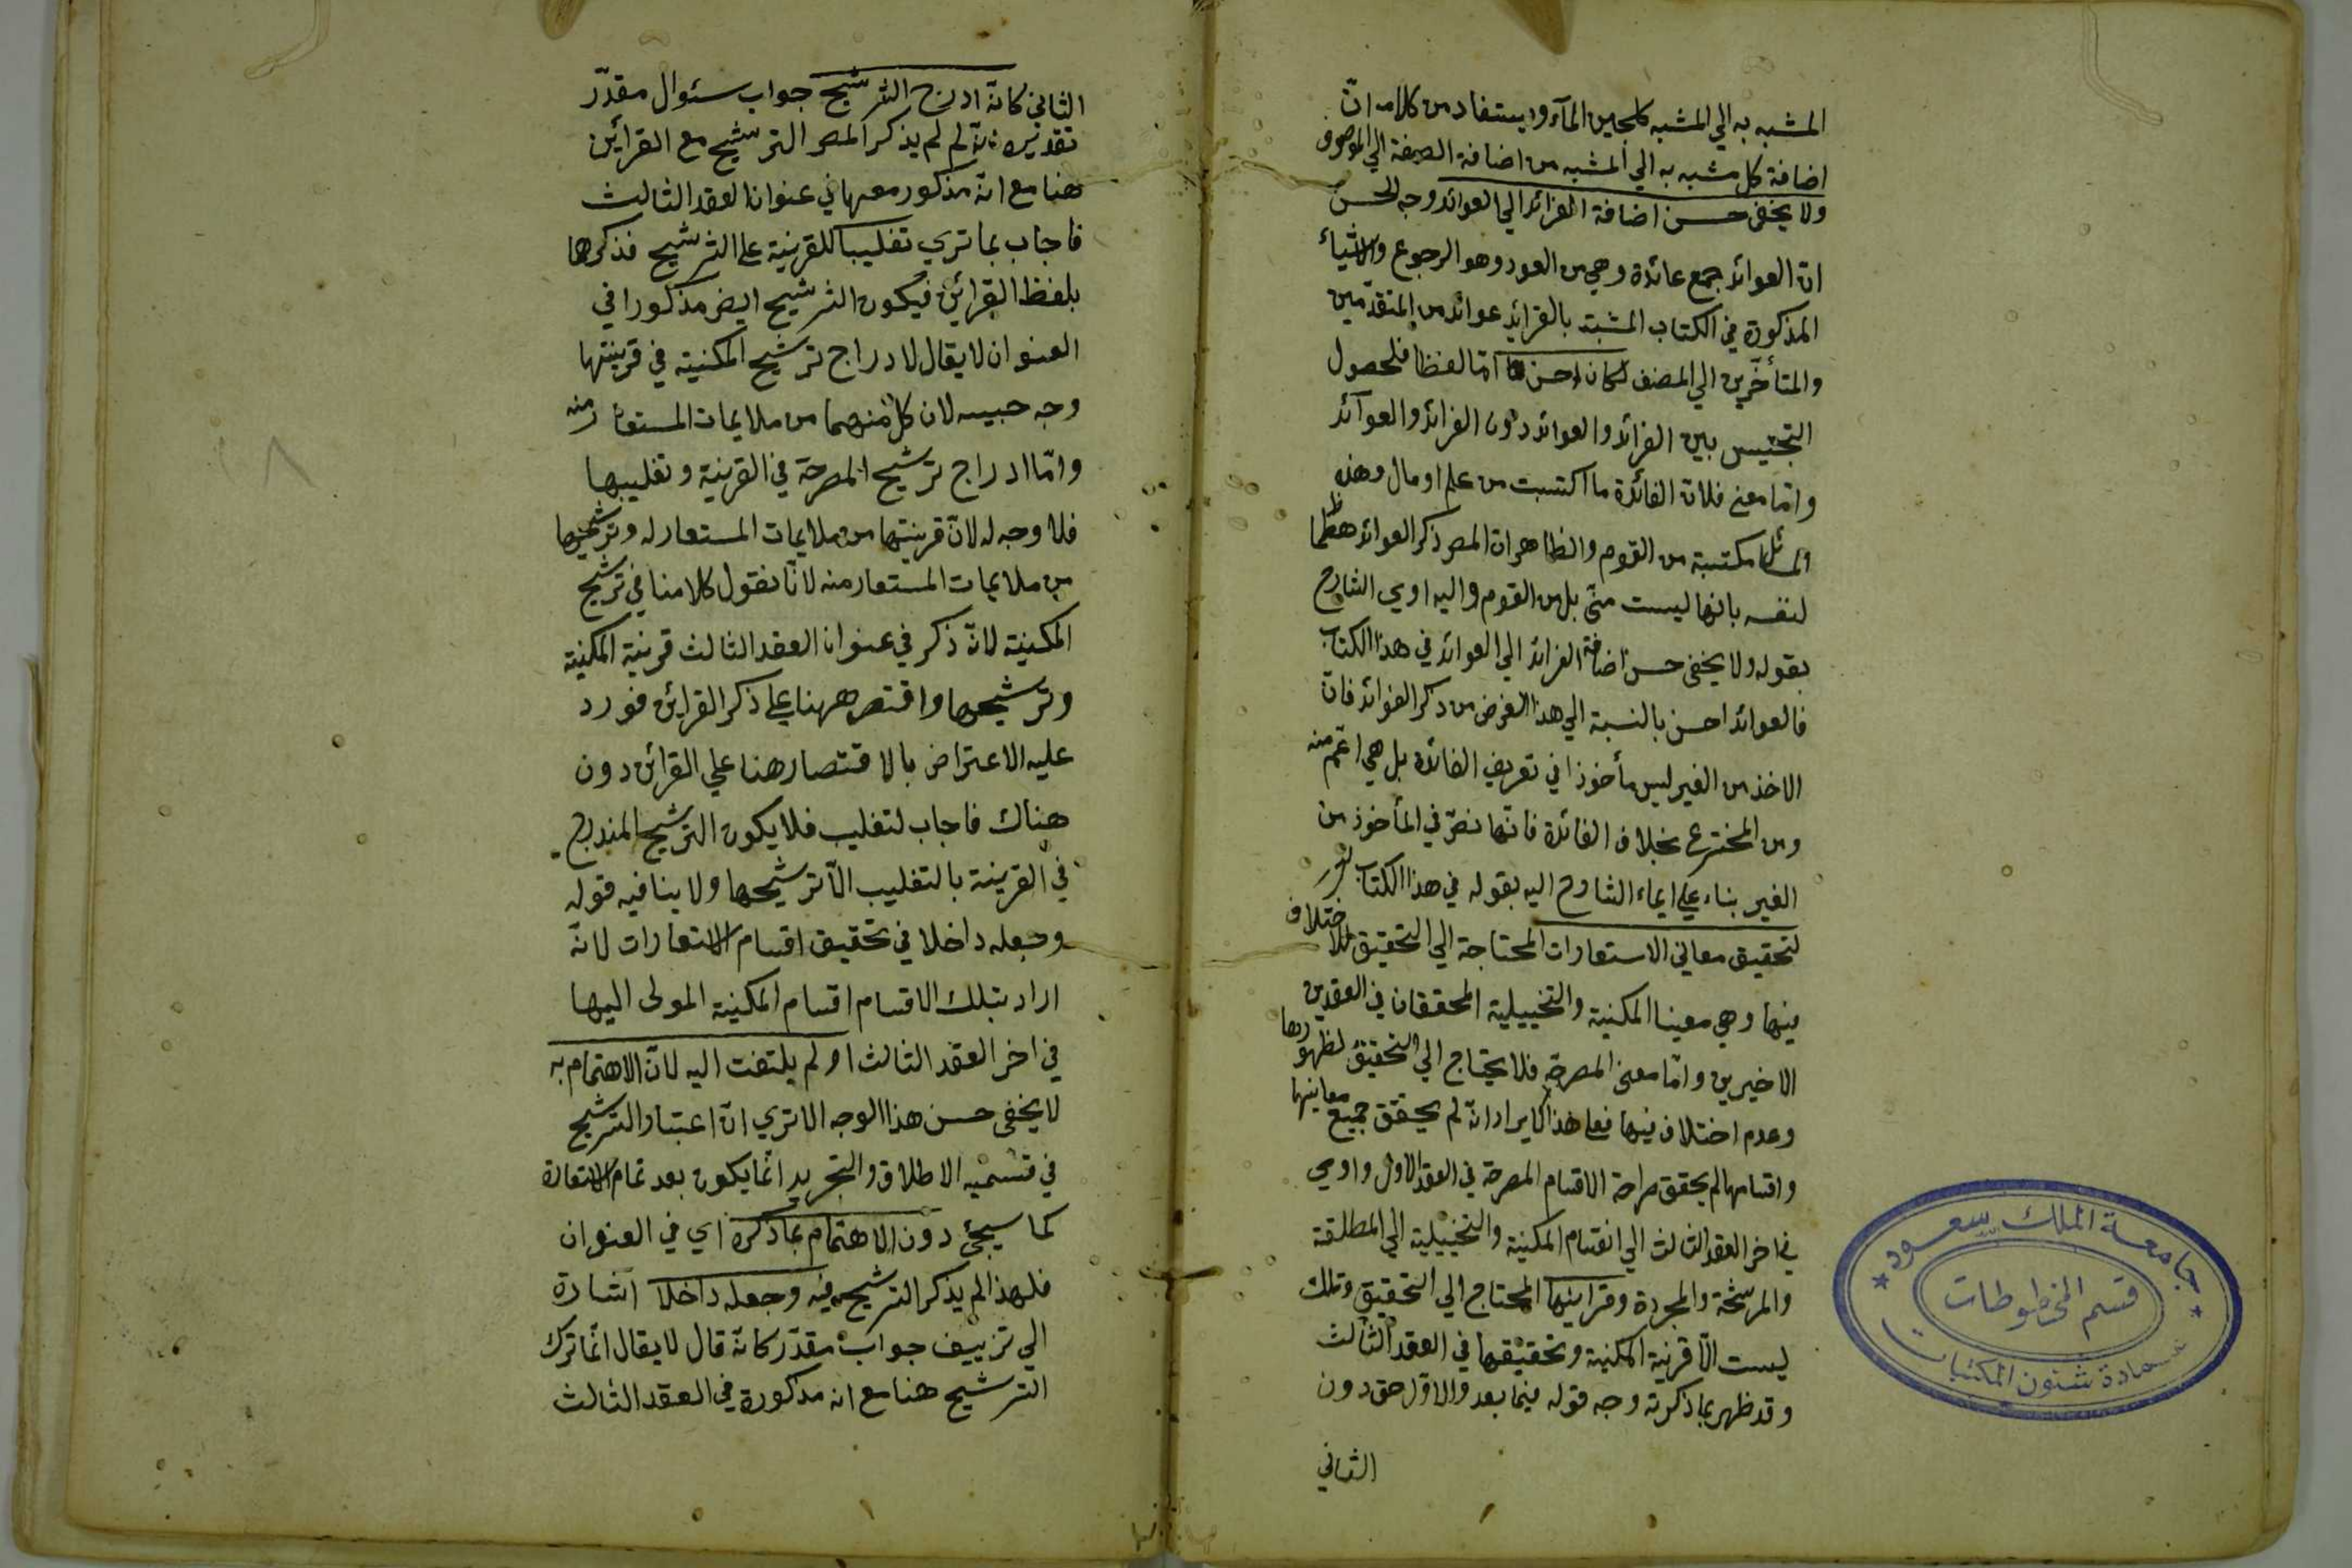 المشبه به الي المشبه كلجين المآء ويستفاد من كلامه انّ
اضافة كل مشبه به الي المشبه من اضافة الصفة الي الموصوف
ولا يخفى حسن اضافة الفرائد الي العوائد وجه الحسن
ان العوائد جمع عائدة وهي من العود وهو الرجوع والاشياء
المذكورة في الكتاب المشبة بالفرائد عوائد من المتقدّمين
والمتأخّرين الي المصنف لكان احسن امّا لفظا فلحصول
التجنيس بين الفرائد والعوائد دون الفرائد والعوآئد
وامّا معنى فلان الفائدة ما اكتسبت من علم او مال وهذه
المسائل مكتسبة من القوم والظاهر ان المص ذكر العوائد هظما
لنفسه بانها ليست منّى بل من القوم واليه اومي الشارح
بقوله ولا يخفى حسن اضافة الفرائد الي العوائد في هذا الكتاب
فالعوائد احسن بالنسبة الي هذا الغرض من ذكر الفوائد فان
الاخذ من الغير ليس مأخوذا في تعريف الفائدة بل هي اعّم منه
ومن المخترع بخلاف الفائدة فانّها نصّ في المأخوذ من
الغير بناء علي ايماء الشارح اليه بقوله في هذا الكتاب
لتحقيق معاني الاستعارات المحتاجة الي التحقيق للاختلاف
فيها وهي معينا المكنية والتخييلية المحققان في العقدين
الاخيرين وامّا معنى المصرحة فلا يحتاج الي التحقيق لظهورها
وعدم اختلاف فيها فعلي هذا لا يراد انّه لم يحقق جميع معاينها
واقسامها لم يحقق صراحة الاقسام المصرحة في العقد الاول واومي
في اخر العقد الثالث الي انقسام المكنية والتخييلية الي المطلقة
والمرشحة والمجردة وقراينها المحتاج الي التحقيق وتلك
ليست الاّ قرنية المكنية وتحقيقها في العقد الثالث
وقد ظهر بما ذكرته وجه قوله فيما بعد والاوّل حق دون
الثاني
جامعة الملك سعود
قسم المخطوطات
عمادة شئون المكتبات
الثاني كانّه ادرج الترشيح جواب سئوال مقدّر
تقديره انّه لم لم يذكر المص الترشيح مع القراين
هنا مع انّه مذكور معها في عنوان العقد الثالث
فاجاب بما تري تغليبا للقرينية علي الترشيح فذكرها
بلفظ القرائن فيكون الترشيح ايض مذكورا في
العنوان لا يقال لادراج ترشيح المكنية في قرينتها
وجه حبيسه لان كلا منهما من ملايمات المستعار منه
وامّا ادراج ترشيح المصرحة في القرينية وتغليبها
فلا وجه له لانّ قرينتها من ملايمات المستعار له وترشيحها
من ملايمات المستعار منه لانّا نقول كلامنا في ترشيح
المكنية لانّه ذكر في عنوان العقد الثالث قرينة المكنية
وترشيحها واقتصر ههنا علي ذكر القراين فورد
عليه الاعتراض بالاقتصار هنا علي القرائن دون
هناك فاجاب لتغليب فلا يكون الترشيح المندرج
في القرينة بالتغليب الاّ ترشيحها ولا ينافيه قوله
وجعله داخلا في تحقيق اقسام الاستعارات لانّه
اراد بتلك الاقسام اقسام المكنية المولى اليها
في اخر العقد الثالث او لم يلتفت اليه لانّ الاهتمام به
لا يخفى حسن هذا الوجه الا تري انّ اعتبار الترشيح
في قسميه الاطلاق والتجريد انّما يكون بعد تمام الاستعارة
كما سيجئ دون الاهتمام بما ذكره اي في العنوان
فلهذا لم يذكر الترشيح فيه وجعله داخلا اشارة
الي تزييف جواب مقدّر كانّه قال لا يقال انّما ترك
الترشيح هنا مع انه مذكورة في العقد الثالث